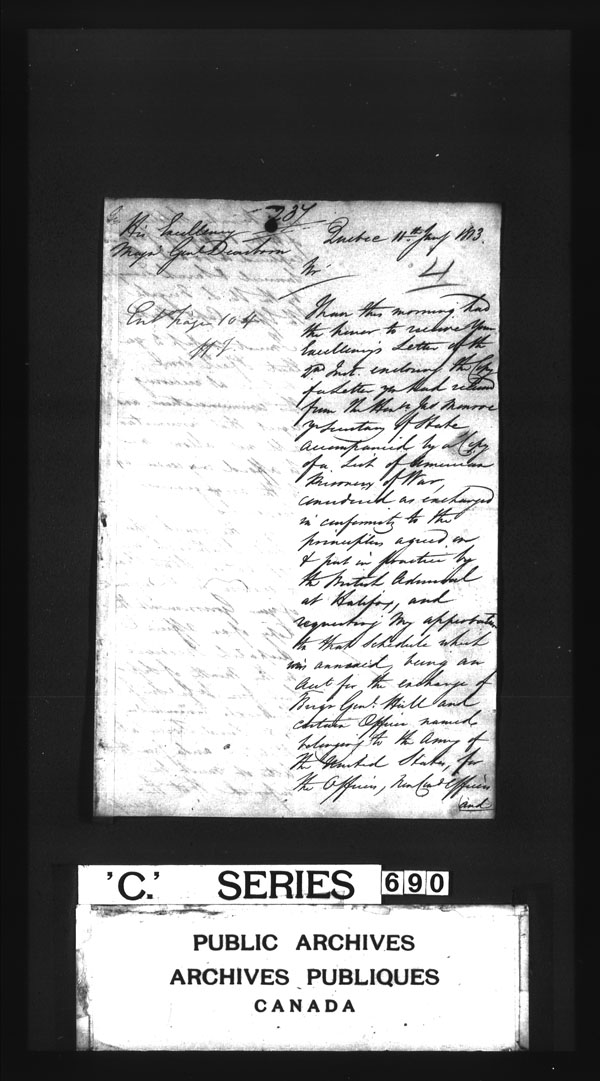 237
His Excellency
Majr Genl Dearborn
Quebec 11th Jany 1813.
Sir
4
Ent Page 104
I have this morning had
the honor to receive Your
Excellency's Letter of the
Inst. enclosing the Copy
of a Letter you had received
from the Honble Jas Monroe
Secretary of State
accompanied by a Copy
of a List of American
Prisoners of War,
considered as exchanged
in conformity to the
principles agreed on
& put in practice by
the British Admiral
at Halifax, and
requesting My approbation
to that Schedule which
was annexed, being an
Act for the exchange of
Brigr Genl. Hull and
certain Officers named
belonging to the Army of
the United States, for
the Officers, Non Comd Officers
and
'C.' SERIES 690
PUBLIC ARCHIVES
ARCHIVES PUBLIQUES
CANADA